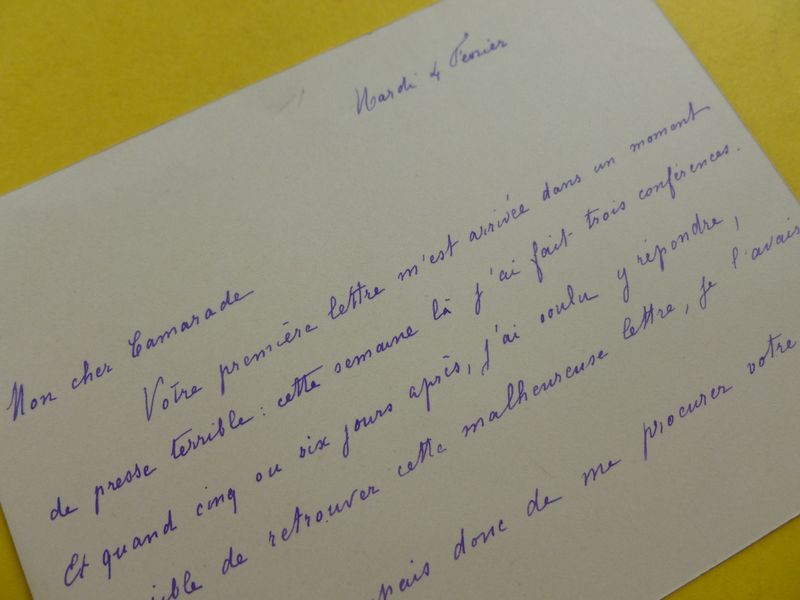 Mardi 4 Février
Mon cher Camarade
Votre première lettre m'est arrivée dans un moment
de presse terrible : cette semaine là j'ai fait trois conférences.
Et quand cinq ou six jours après, j'ai voulu y répondre,
de retrouver cette malheureuse lettre, je l'avais
donc de me procurer votre